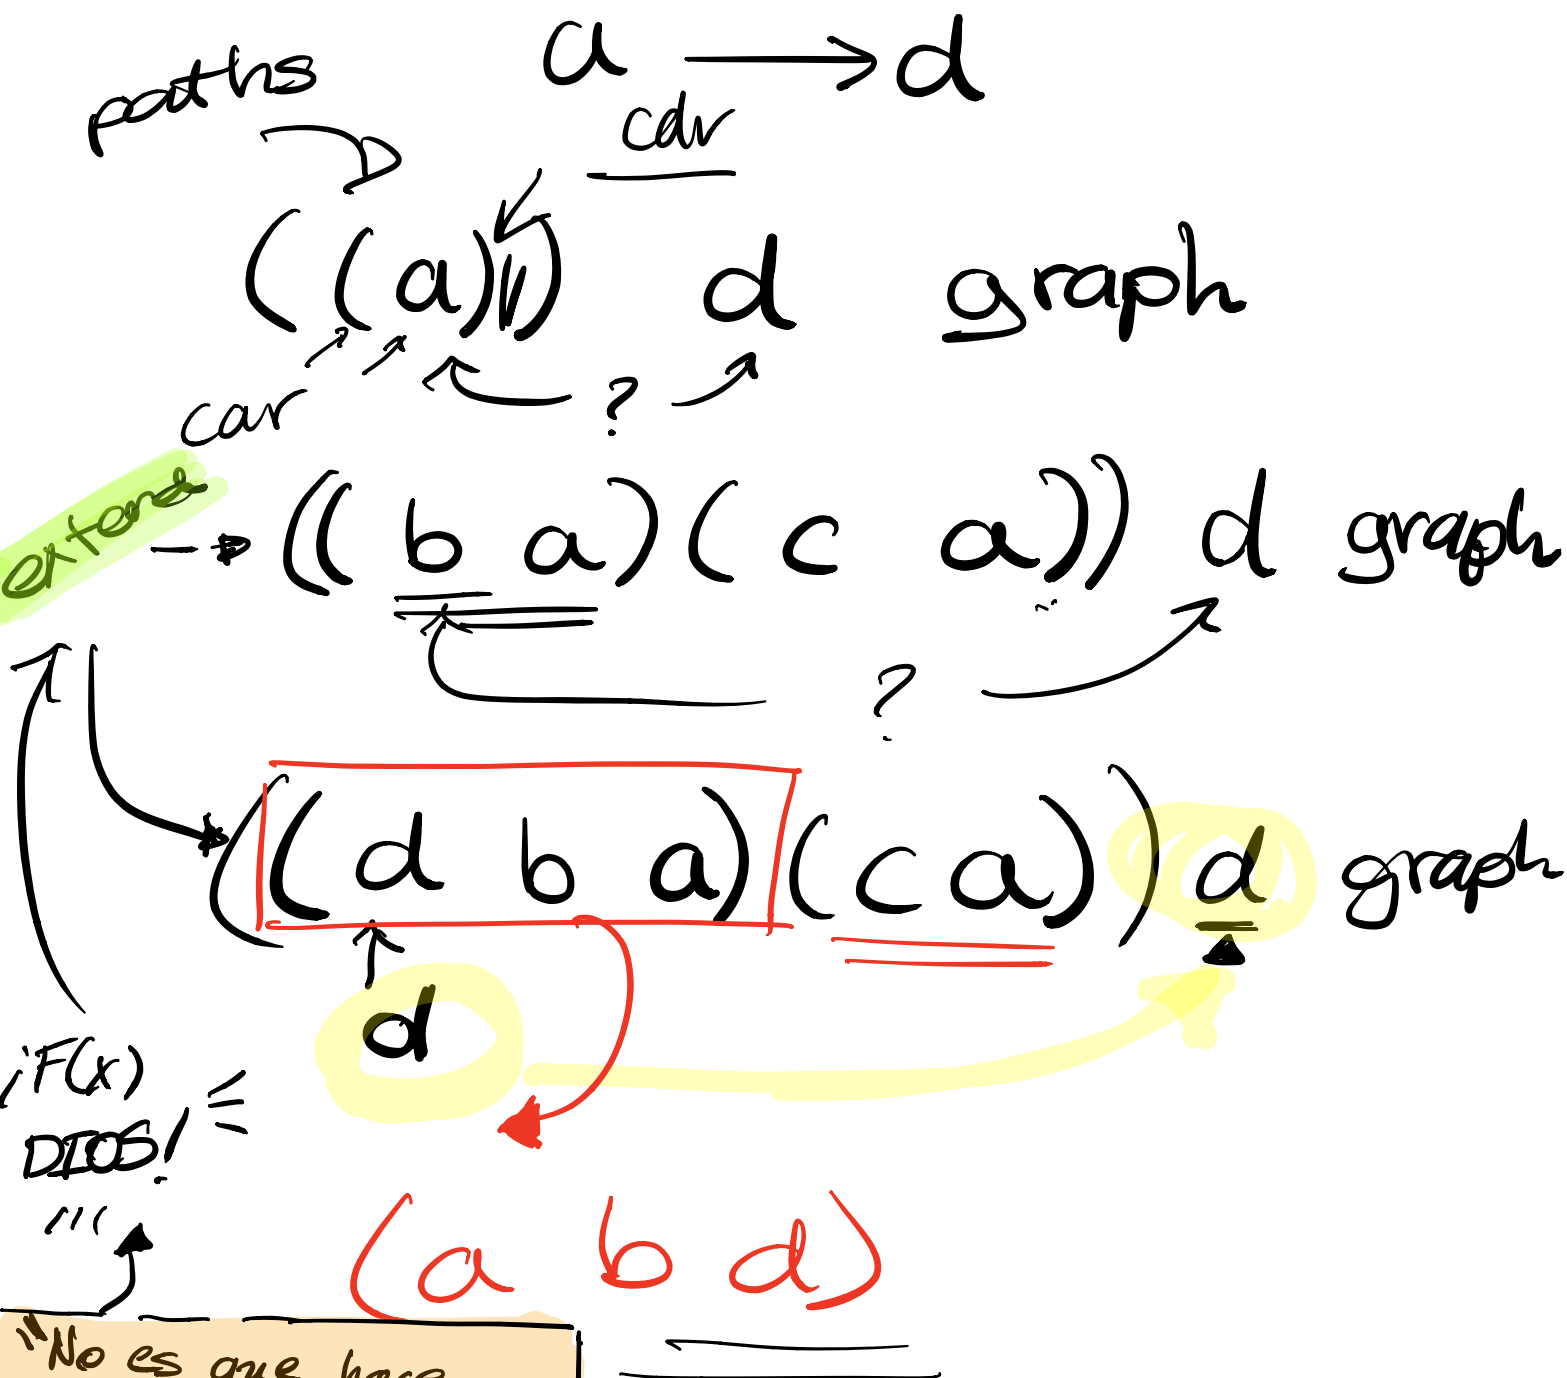 a → d
paths
cdr
((a)) d graph
car
?
extend → ((b a)(c a)) d graph
?
((d b a)(c a)) d graph
d
¡F(x)
DIOS!
(a b d)
"No es que hace